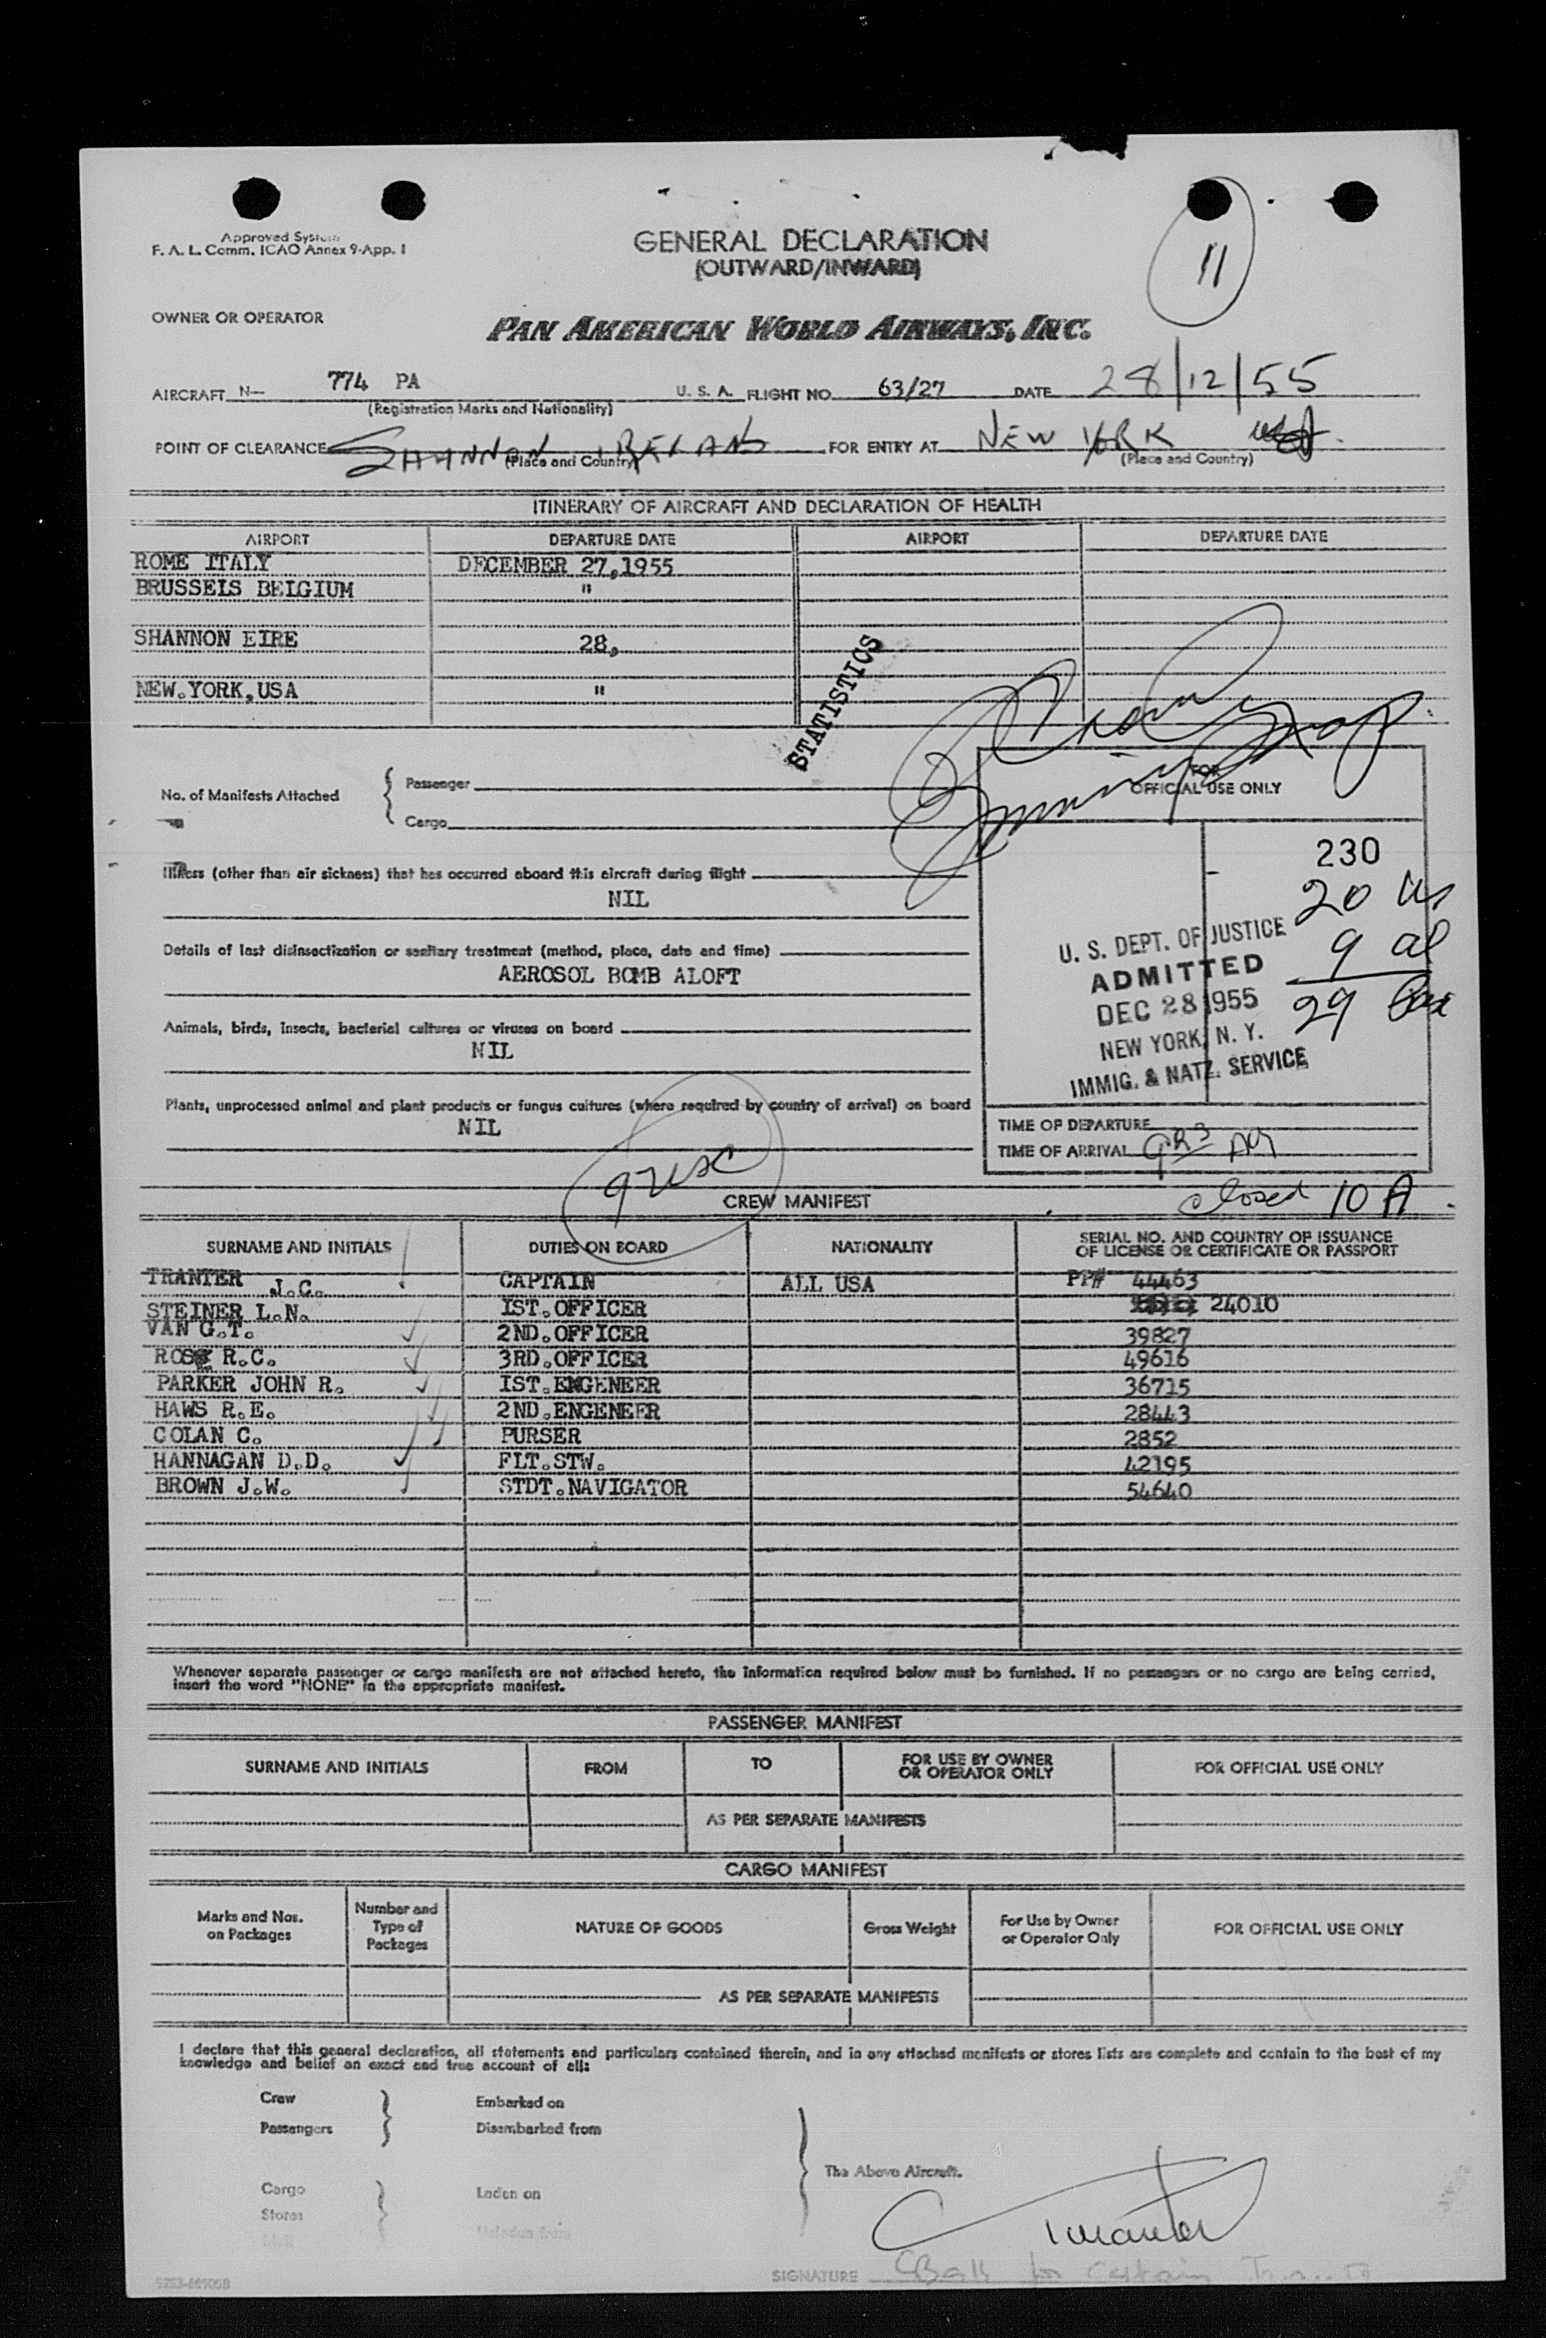 Approved System
F. A. L. Comm. ICAO Annex 9-App. 1
GENERAL DECLARATION
(OUTWARD/INWARD)
11
OWNER OR OPERATOR
PAN AMERICAN WORLD AIRWAYS, INC.
AIRCRAFT N- 774 PA U. S. A. FLIGHT NO. 63/27 DATE 28/12/55
(Registration Marks and Nationality)
POINT OF CLEARANCE SHANNON IRELAND FOR ENTRY AT NEW YORK
(Place and Country) (Place and Country)
ITINERARY OF AIRCRAFT AND DECLARATION OF HEALTH
AIRPORT DEPARTURE DATE AIRPORT DEPARTURE DATE
ROME ITALY DECEMBER 27,1955
BRUSSELS BELGIUM "
SHANNON EIRE 28,
NEW.YORK,USA "
STATISTICS
No. of Manifests Attached
Passenger
Cargo
FOR
OFFICIAL USE ONLY
Illness (other than air sickness) that has occurred aboard this aircraft during flight
NIL
Details of last disinsectization or sanitary treatment (method, place, date and time)
AEROSOL BOMB ALOFT
Animals, birds, insects, bacterial cultures or viruses on board
NIL
Plants, unprocessed animal and plant products or fungus cultures (where required by country of arrival) on board
NIL
230
20 us
9 al
29
U. S. DEPT. OF JUSTICE
ADMITTED
DEC 28 1955
NEW YORK, N. Y.
IMMIG. & NATZ. SERVICE
TIME OF DEPARTURE
TIME OF ARRIVAL
closed 10 A
CREW MANIFEST
SURNAME AND INITIALS DUTIES ON BOARD NATIONALITY SERIAL NO. AND COUNTRY OF ISSUANCE
OF LICENSE OR CERTIFICATE OR PASSPORT
TRANTER J.C. CAPTAIN ALL USA PP# 44463
STEINER L.N. IST.OFFICER 24010
VAN G.T. 2ND.OFFICER 39827
ROSE R.C. 3RD.OFFICER 49616
PARKER JOHN R. IST.ENGENEER 36715
HAWS R.E. 2ND.ENGENEER 28443
COLAN C. PURSER 2852
HANNAGAN D.D. FLT.STW. 42195
BROWN J.W. STDT.NAVIGATOR 54640
Whenever separate passenger or cargo manifests are not attached hereto, the information required below must be furnished. If no passengers or no cargo are being carried,
insert the word "NONE" in the appropriate manifest.
PASSENGER MANIFEST
SURNAME AND INITIALS FROM TO FOR USE BY OWNER
OR OPERATOR ONLY FOR OFFICIAL USE ONLY
AS PER SEPARATE MANIFESTS
CARGO MANIFEST
Marks and Nos.
on Packages
Number and
Type of
Packages
NATURE OF GOODS
Gross Weight
For Use by Owner
or Operator Only
FOR OFFICIAL USE ONLY
AS PER SEPARATE MANIFESTS
I declare that this general declaration, all statements and particulars contained therein, and in any attached manifests or stores lists are complete and contain to the best of my
knowledge and belief an exact and true account of all:
Crew Embarked on
Passengers Disembarked from
The Above Aircraft.
Cargo Laden on
Stores
Mail Unladen from
Tranter
SIGNATURE CBall for Captain